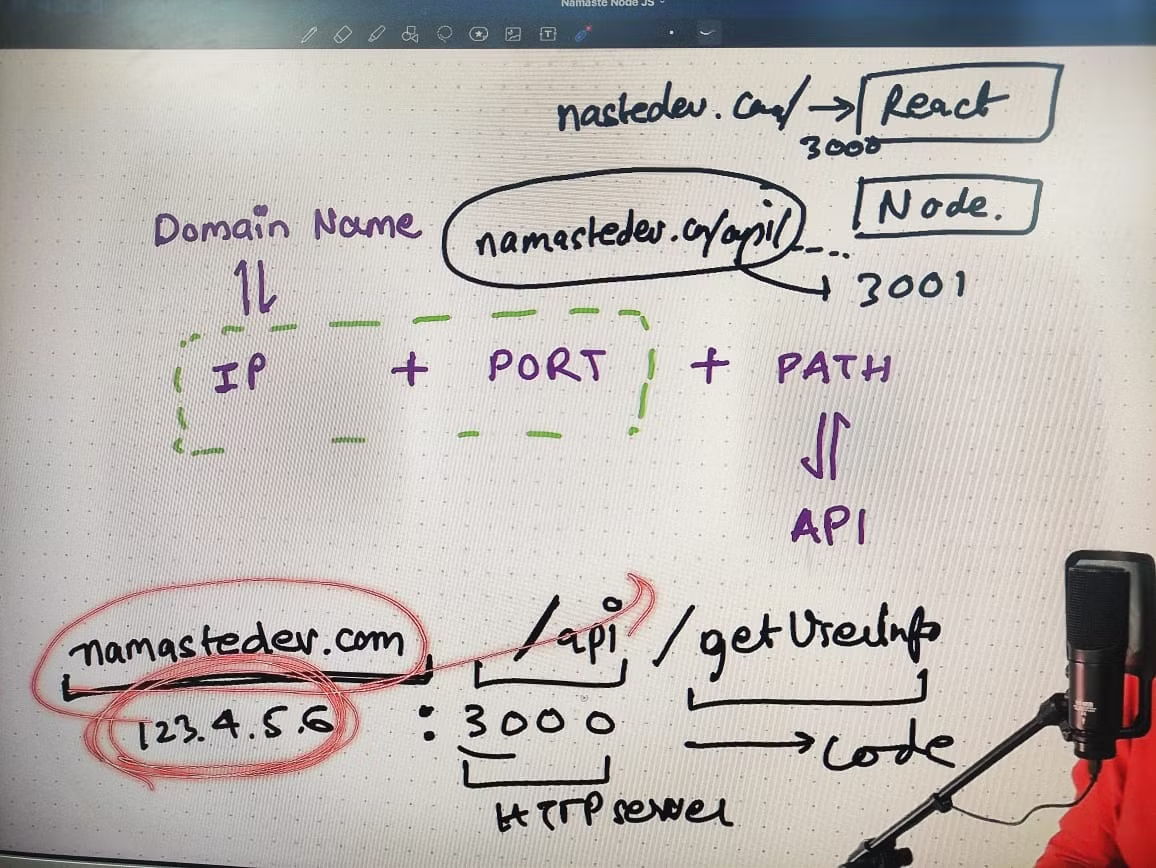 Namaste Node JS
nastedev.com/ → React
3000
Node.
Domain Name
namastedev.com/api/ ....
3001
IP + PORT + PATH
API
namastedev.com /api /getUserInfo
123.4.5.6 : 3000 → code
HTTP server